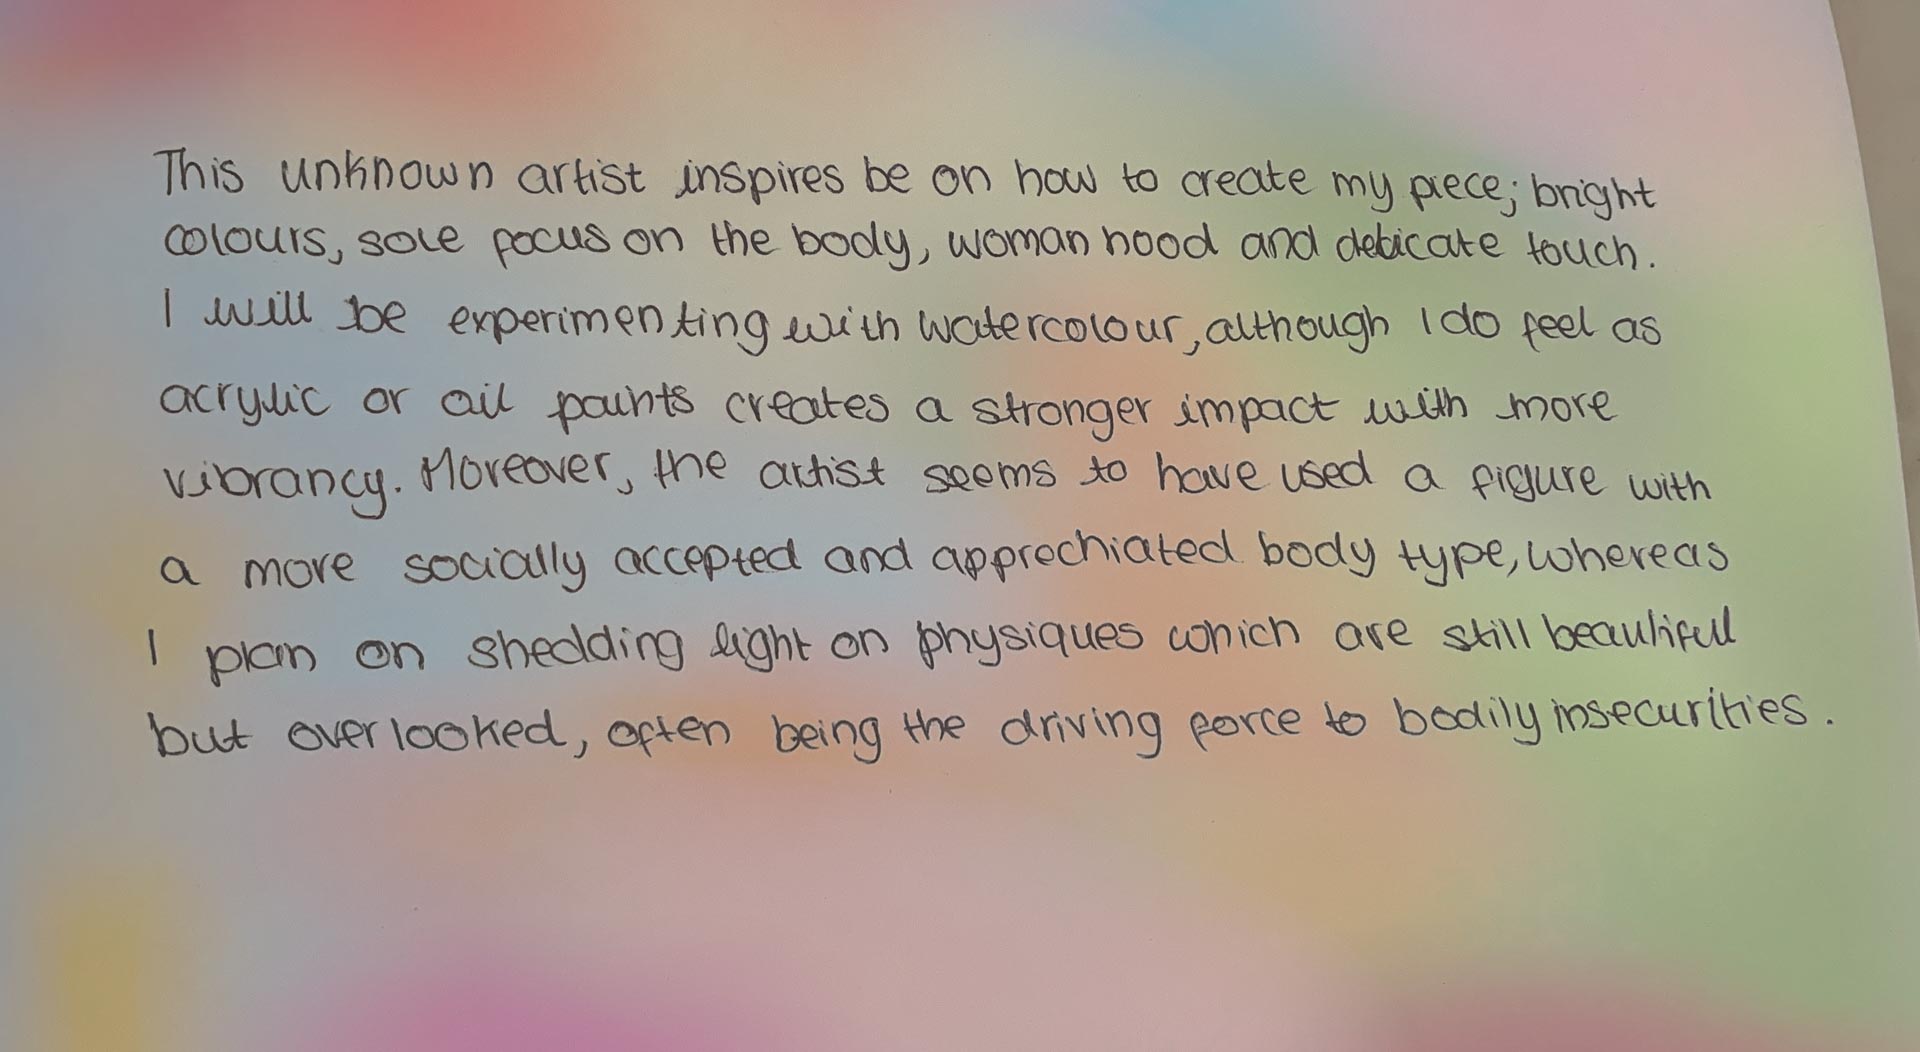 This unknown artist inspires be on how to create my piece; bright
colours, sole focus on the body, woman hood and delicate touch.
I will be experimenting with watercolour, although I do feel as
acrylic or oil paints creates a stronger impact with more
vibrancy. Moreover, the artist seems to have used a figure with
a more socially accepted and approchiated body type, whereas
I plan on shedding light on physiques which are still beautiful
but overlooked, often being the driving force to bodily insecurities.